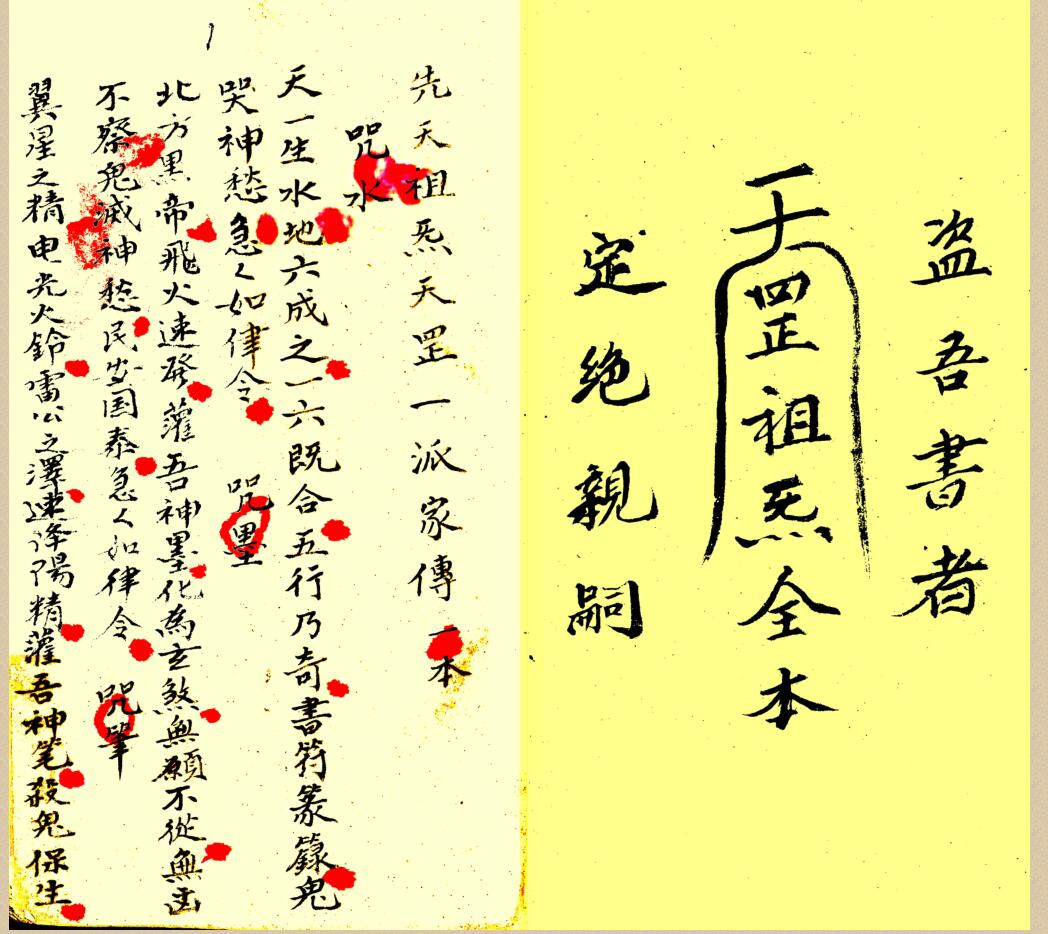 盗吾書者
天罡祖炁全本
定绝親嗣
先天祖炁天罡一派家傳一本
咒水
天一生水地六成之一六既合五行乃奇書符篆籙鬼
哭神愁急々如律令 咒墨
北方黑帝飛火速發灌吾神墨化為玄煞無願不從無幽
不察鬼滅神愁民安国泰急々如律令 咒筆
翼星之精电光火鈴雷公之澤速降陽精灌吾神笔殺鬼保生